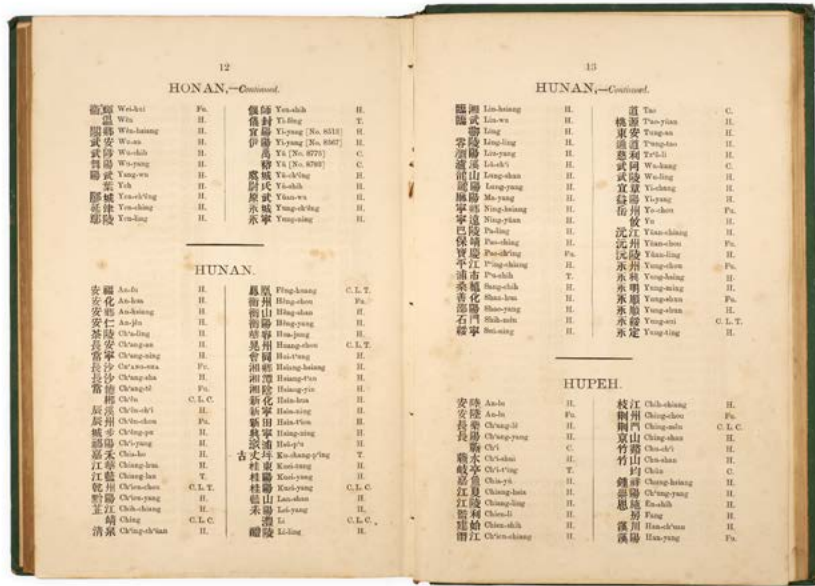 12
HONAN,—Continued.
衞輝 Wei-hui Fu.
溫 Wên H.
閿鄉 Wên-hsiang H.
武安 Wu-an H.
武陟 Wu-chih H.
舞陽 Wu-yang H.
陽武 Yang-wu H.
葉 Yeh H.
郾城 Yen-ch'êng H.
延津 Yen-ching H.
鄢陵 Yen-ling H.
偃師 Yen-shih H.
儀封 Yi-fêng T.
宜陽 Yi-yang [No. 8513] H.
伊陽 Yi-yang [No. 8567] H.
禹 Yü [No. 8773] C.
裕 Yü [No. 8769] C.
虞城 Yü-ch'êng H.
尉氏 Yü-shih H.
原武 Yüan-wu H.
永城 Yung-ch'êng H.
永寧 Yung-ning H.
HUNAN.
安福 An-fu H.
安化 An-hua H.
安鄉 An-hsiang H.
安仁 An-jên H.
茶陵 Ch'a-ling C.
長安 Ch'ang-an H.
常寧 Ch'ang-ning H.
長沙 CH'ANG-SHA Fu.
長沙 Ch'ang-sha H.
常德 Ch'ang-tê Fu.
郴 Ch'ên C.L.C.
辰溪 Ch'ên-ch'i H.
辰州 Ch'ên-chou Fu.
城步 Ch'êng-pu H.
祁陽 Ch'i-yang H.
嘉禾 Chia-ho H.
江華 Chiang-hua H.
江藍 Chiang-lan T.
乾州 Ch'ien-chou C.L.T.
黔陽 Ch'ien-yang H.
芷江 Chih-chiang H.
靖 Ching C.L.C.
清泉 Ch'ing-ch'üan H.
鳳凰 Fêng-huang C.L.T.
衡州 Hêng-chou Fu.
衡山 Hêng-shan H.
衡陽 Hêng-yang H.
華容 Hua-jung H.
晃州 Huang-chou C.L.T.
會同 Hui-t'ung H.
湘鄉 Hsiang-hsiang H.
湘潭 Hsiang-t'an H.
湘陰 Hsiang-yin H.
新化 Hsin-hua H.
新寧 Hsin-ning H.
新田 Hsin-t'ien H.
興寧 Hsing-ning H.
漵浦 Hsü-p'u H.
古丈坪 Ku-chang-p'ing T.
桂東 Kuei-tung H.
桂陽 Kuei-yang H.
桂陽 Kuei-yang C.L.C.
藍山 Lan-shan H.
耒陽 Lei-yang H.
澧 Li C.L.C.
醴陵 Li-ling H.
13
HUNAN,—Continued.
臨湘 Lin-hsiang H.
臨武 Lin-wu H.
酃 Ling H.
零陵 Ling-ling H.
瀏陽 Liu-yang H.
瀘溪 Lu-ch'i H.
龍山 Lung-shan H.
龍陽 Lung-yang H.
麻陽 Ma-yang H.
寧鄉 Ning-hsiang H.
寧遠 Ning-yüan H.
巴陵 Pa-ling H.
保靖 Pao-ching H.
寶慶 Pao-ch'ing Fu.
平江 P'ing-chiang H.
浦市 P'u-shih T.
桑植 Sang-chih H.
善化 Shan-hua H.
邵陽 Shao-yang H.
石門 Shih-mên H.
綏寧 Sui-ning H.
道 Tao C.
桃源 T'ao-yüan H.
東安 Tung-an H.
通道 T'ung-tao H.
慈利 Tz'ŭ-li H.
武岡 Wu-kang C.
武陵 Wu-ling H.
宜章 Yi-chang H.
益陽 Yi-yang H.
岳州 Yo-chou Fu.
攸 Yu H.
沅江 Yüan-chiang H.
沅州 Yüan-chou Fu.
沅陵 Yüan-ling H.
永州 Yung-chou Fu.
永興 Yung-hsing H.
永明 Yung-ming H.
永順 Yung-shun Fu.
永順 Yung-shun H.
永綏 Yung-sui C.L.T.
永定 Yung-ting H.
HUPEH.
安陸 An-lu H.
安陸 An-lu Fu.
長樂 Ch'ang-lê H.
長陽 Ch'ang-yang H.
蘄 Ch'i C.
蘄水 Ch'i-shui H.
岐亭 Ch'i-t'ing T.
嘉魚 Chia-yü H.
江夏 Chiang-hsia H.
江陵 Chiang-ling H.
監利 Chien-li H.
建始 Chien-shih H.
潛江 Ch'ien-chiang H.
枝江 Chih-chiang H.
荆州 Ching-chou Fu.
荆門 Ching-mên C.L.C.
京山 Ching-shan H.
竹谿 Chu-ch'i H.
竹山 Chu-shan H.
均 Chün C.
鍾祥 Chung-hsiang H.
崇陽 Ch'ung-yang H.
恩施 En-shih H.
房 Fang H.
漢川 Han-ch'uan H.
漢陽 Han-yang Fu.